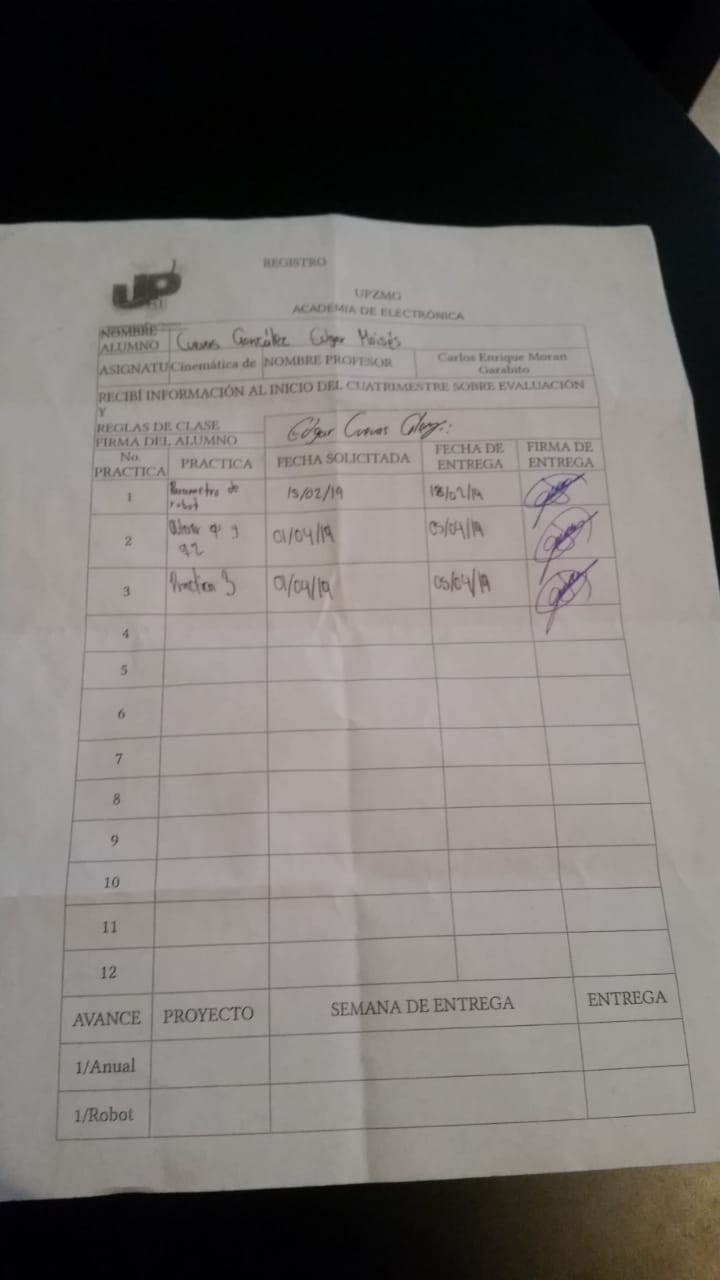 UP
REGISTRO
UPZMG
ACADEMIA DE ELECTRÓNICA
NOMBRE ALUMNO Cuevas González Edgar Moisés
ASIGNATU Cinemática de NOMBRE PROFESOR Carlos Enrique Moran Garabito
RECIBÍ INFORMACIÓN AL INICIO DEL CUATRIMESTRE SOBRE EVALUACIÓN
Y
REGLAS DE CLASE
FIRMA DEL ALUMNO Edgar Cuevas
No. PRACTICA PRACTICA FECHA SOLICITADA FECHA DE ENTREGA FIRMA DE ENTREGA
1 Parametro de robot 15/02/19 18/02/19
2 q1 y q2 01/04/19 05/04/19
3 Practica 3 01/04/19 05/04/19
4
5
6
7
8
9
10
11
12
AVANCE PROYECTO SEMANA DE ENTREGA ENTREGA
1/Anual
1/Robot